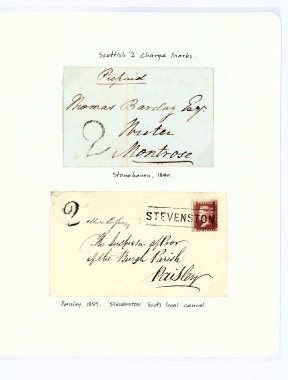 Scottish '2' Charge Marks.
Prepaid
Thomas Barclay Esq.
Writer
2
Montrose
Stonehaven, 1840.
2
STEVENSTON
The Inspector of Poor
of the Burgh Parish
Paisley
Paisley, 1859. 'STEVENSTON' Scots local cancel.